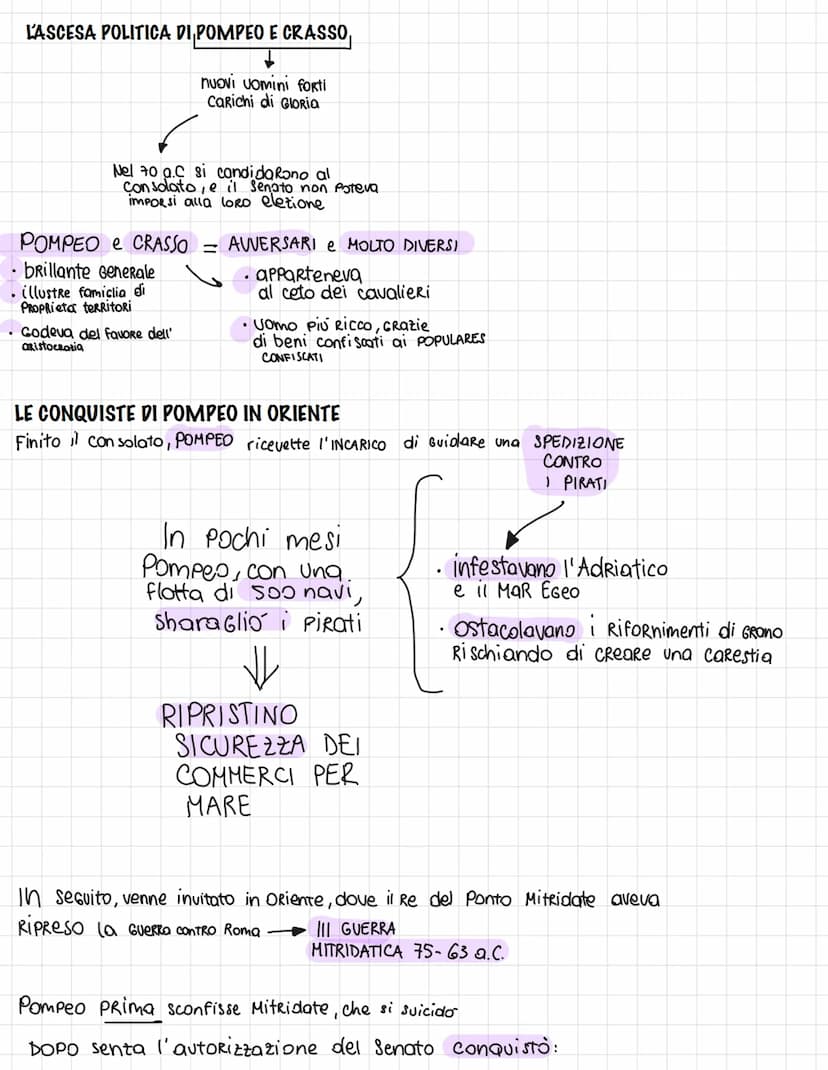 L'ASCESA POLITICA DI POMPEO E CRASSO
nuovi uomini forti
carichi di Gloria
Nel 70 a.C si candidarono al
consolato, e il Senato non poteva
imporsi alla loro eletione
POMPEO e CRASSO = AVVERSARI e MOLTO DIVERSI
• brillante Generale
• illustre famiglia di
proprietà territori
• Godeva del favore dell'
aristocrazia
• apparteneva
al ceto dei cavalieri
• uomo più ricco, grazie
di beni confiscati ai POPULARES
CONFISCATI
LE CONQUISTE DI POMPEO IN ORIENTE
Finito il consolato, POMPEO ricevette l'INCARICO di guidare una SPEDIZIONE
CONTRO
I PIRATI
In pochi mesi
Pompeo, con una
flotta di 500 navi,
sbaragliò i pirati
• infestavano l'Adriatico
e il Mar Egeo
• Ostacolavano i rifornimenti di grano
rischiando di creare una carestia
RIPRISTINO
SICUREZZA DEI
COMMERCI PER
MARE
In seguito, venne invitato in Oriente, dove il Re del Ponto Mitridate aveva
ripreso la guerra contro Roma → III GUERRA
MITRIDATICA 75-63 a.C.
Pompeo prima sconfisse Mitridate, che si suicidò
DOPO senta l'autorizzazione del Senato conquistò: